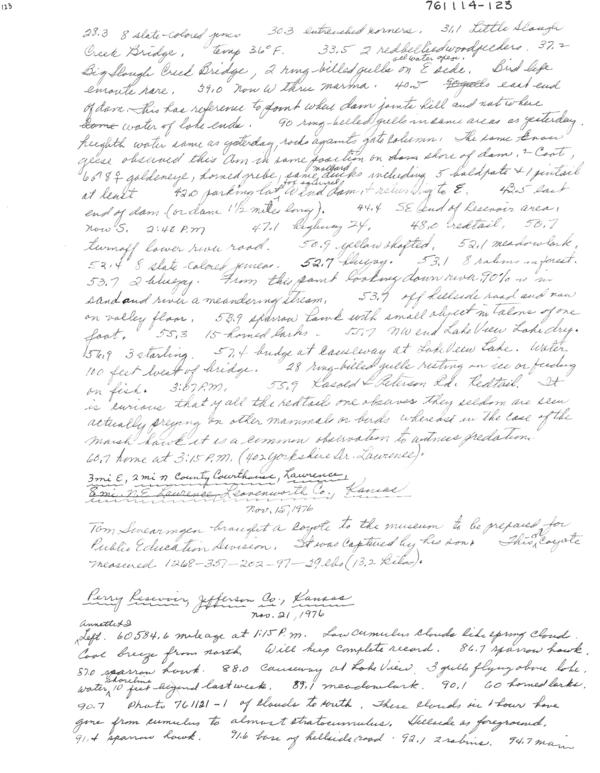 123
761114-123
28.3 8 slate-colored juncos 30.3 entrenched korners. 31.1 Little Slough
Creek Bridge, temp 36°F. 33.5 2 redbelliedwoodpeckers. 37.2
all water open.
Big Slough Creek Bridge, 2 ring-billed gulls on E side. Bird life
enroute rare. 39.0 now W thru marina. 40.5 east end
of dam - this has reference to point where dam joints hill and not where
water of lake ends. 90 ring-billed gulls in same areas as yesterday.
heighth water same as yesterday, rocks againts gate column. The same snow
geese observed this Am in same position on dam shore of dam. 2 Coot,
6♂8♀ goldeneye, horned grebe, some mallard ducks including 5 baldpate & 1 pintail
at least 42.0 parking lot W end dam, + returning to E. 42.5 east
end of dam (or dam 1½ miles long). 44.4 SE end of Resevoir area,
now S. 2:40 P.M 47.1 highway 24, 48.0 redtail, 50.7
turnoff lower river road. 50.9 yellow shafted, 52.1 meadowlark,
52.4 8 slate-colored juncos. 52.7 bluejay. 53.1 8 robins in forest.
53.7 2 bluejay. From this point looking down river 90% is in
sand and river a meandering stream. 53.9 off hillside road and now
on valley floor. 53.9 sparrow hawk with small object in talons of one
foot. 55.3 15 horned larks. 55.7 NW end Lake View Lake dry.
56.9 3 starling. 57.4 bridge at causeway at Lake View Lake. Water
100 feet west of bridge. 28 ring-billed gulls resting on ice or feeding
on fish. 3:07 P.M. 58.9 Kasold & Peterson Rd. Redtail. It
is curious that of all the redtail one observes they seldom are seen
actually preying on other mammals or birds whereas in the case of the
marsh hawk it is a common observation to witness predation.
60.7 home at 3:15 P.M. (402 Yorkshire Dr. Lawrence).
3 mi E, 2 mi N County Courthouse, Lawrence,
8 mi. N.E. Lawrence, Leavenworth Co., Kansas
Nov. 15, 1976
Tom Swearingen brought a coyote to the museum to be prepared for
Public Education Division. It was captured by his son. This ♂ coyote
measured 1268-357-202-97-29 lbs (13.2 kilos).
Perry Resevoir, Jefferson Co., Kansas
Nov. 21, 1976
Annette & I
Left. 60584.6 mileage at 1:15 P.m. Low cumulus clouds like spring cloud.
Cool breeze from north Will keep complete record. 86.7 sparrow hawk.
87.0 sparrow hawk. 88.0 causeway at Lake View. 3 gulls flying above lake.
water shoreline 10 feet beyond last week. 89.1 meadowlark. 90.1 60 horned larks.
90.7 Photo 761121-1 of clouds to south. These clouds in 1 hour have
gone from cumulus to almost stratocumulus. Hillside as foreground.
91.4 sparrow hawk. 91.6 base of hillside road. 92.1 2 robins. 94.7 main